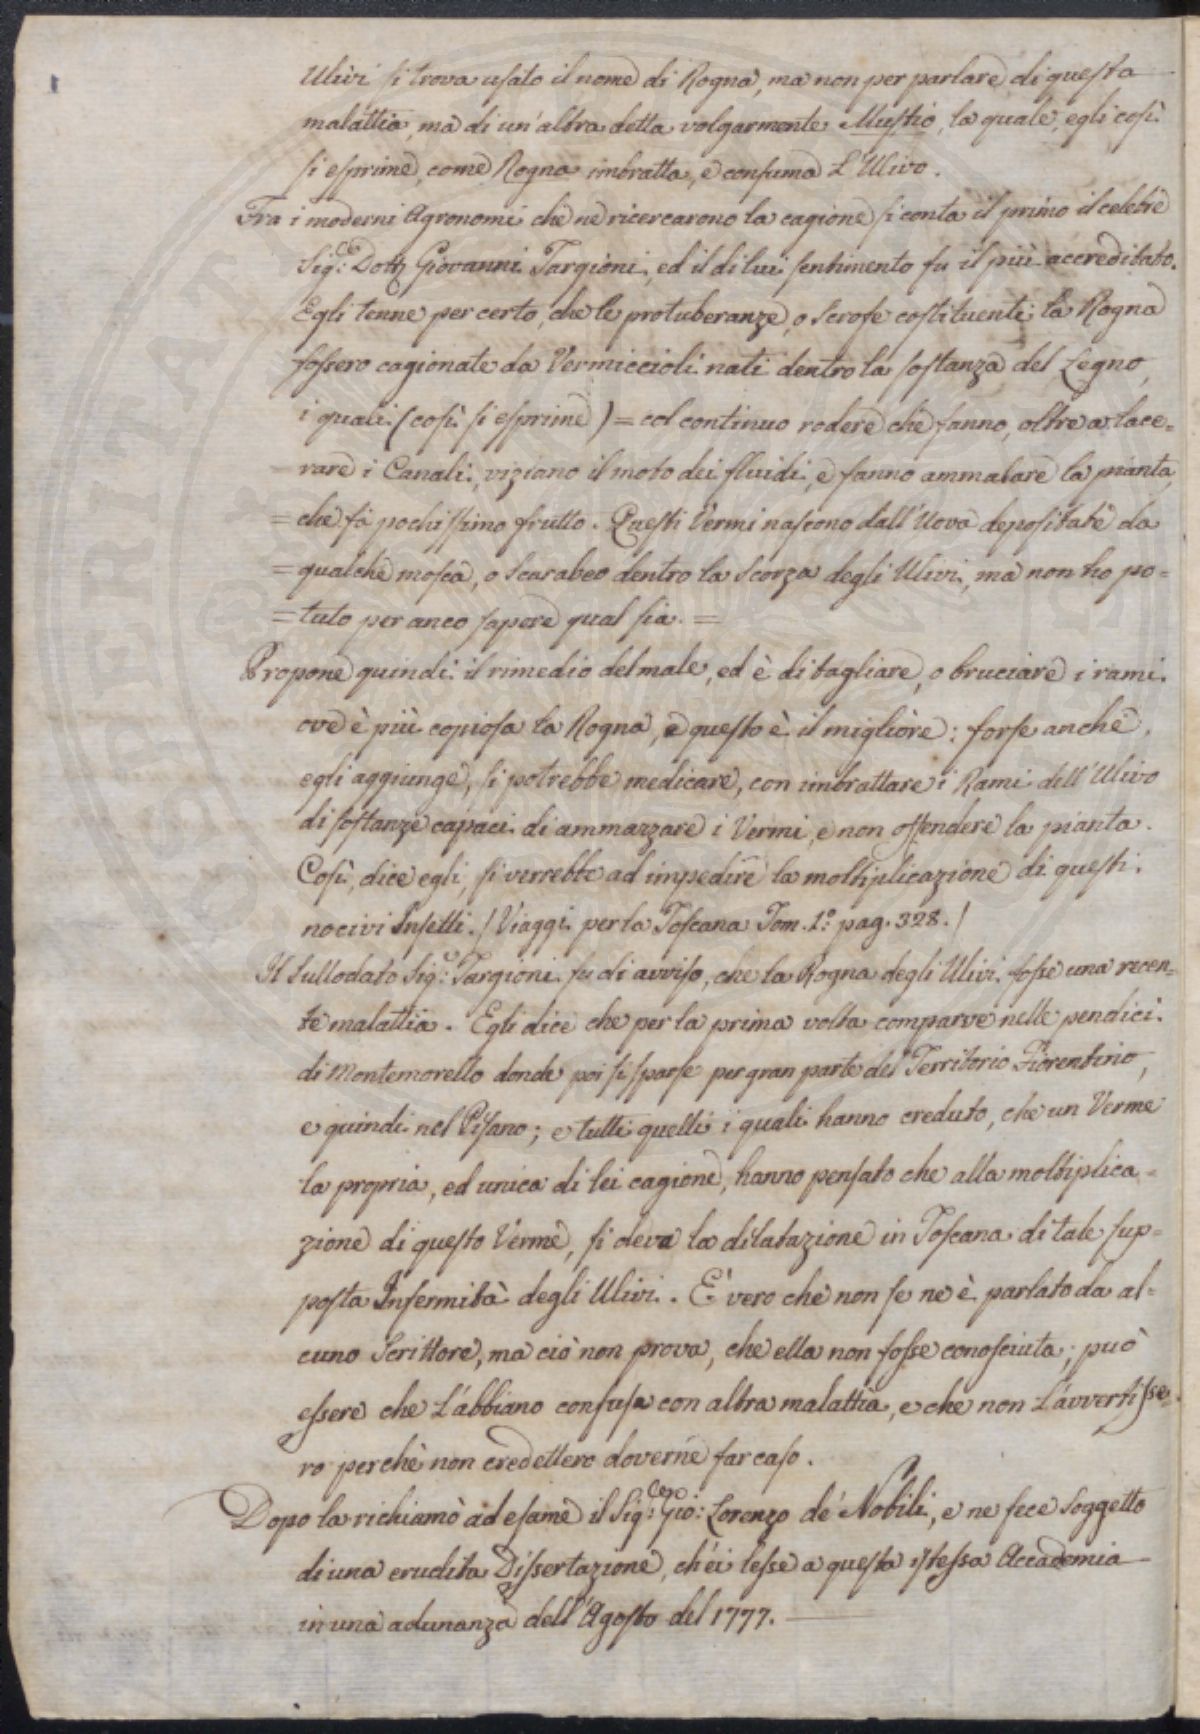 Ulivi si trova usato il nome di Rogna, ma non per parlare di questa
malattia, ma di un'altra detta volgarmente Mustio, la quale, egli così
si esprime, come Rogna imbratta, e consuma L'Ulivo.
Fra i moderni Agronomi che ne ricercarono la cagione si conta il primo il celebre
Sig.e Dott. Giovanni Targioni, ed il di lui sentimento fu il più accreditato.
Egli tenne per certo, che le protuberanze, o Scrofe costituenti la Rogna
fossero cagionate da Vermiccioli nati dentro la sostanza del Legno,
i quali (così si esprime) = col continuo rodere che fanno, oltre a lace=
rare i Canali, viziano il moto dei fluidi, e fanno ammalare la pianta,
= che fà pochissimo frutto. Questi Vermi nascono dall'Uova depositate da
= qualche mosca, o Scarabeo dentro la Scorza degli Ulivi, ma non ho po=
= tuto per anco sapere qual sia. =
Propone quindi il rimedio del male, ed è di tagliare, o bruciare i rami
ove è più copiosa la Rogna, e questo è il migliore: forse anche,
egli aggiunge, si potrebbe medicare, con imbrattare i Rami dell'Ulivo
di sostanze capaci di ammazzare i Vermi, e non offendere la pianta.
Così, dice egli, si verrebbe ad impedire la moltiplicazione di questi
nocivi Insetti. / Viaggi per la Toscana Tom. 1.° pag. 328. /
Il Sullodato Sig.e Targioni fu di avviso, che la Rogna degli Ulivi fosse una recen=
te malattia. Egli dice che per la prima volta comparve nelle pendici
di Montemorello donde poi si sparse per gran parte del Territorio Fiorentino,
e quindi nel Pisano; e tutti quelli i quali hanno creduto, che un Verme
la propria, ed unica di lei cagione, hanno pensato che alla moltiplica=
zione di questo Verme, si deva la dilatazione in Toscana di tale sup=
posta Infermità degli Ulivi. E' vero che non se ne è parlato da al=
cuno Scrittore, ma ciò non prova, che ella non fosse conosciuta; può
essere che L'abbiano confusa con altra malattia, e che non L'avvertisse=
ro perchè non credettero doverne far caso.
Dopo la richiamò ad esame il Sig.e Gio: Lorenzo de' Nobili, e ne fece Soggetto
di una erudita Dissertazione, ch'ei lesse a questa istessa Accademia
in una adunanza dell'Agosto del 1777.